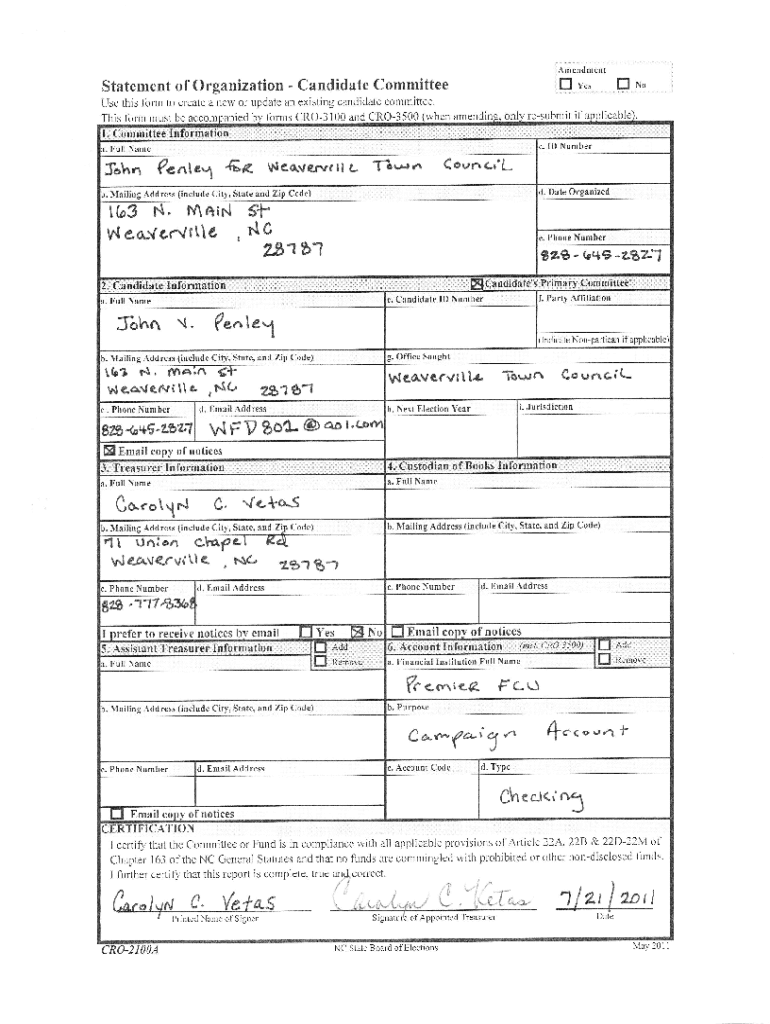 Amendment
Statement of Organization - Candidate Committee
☐ Yes ☐ No
Use this form to create a new or update an existing candidate committee.
This form must be accompanied by forms CRO-3100 and CRO-3500 (when amending, only re-submit if applicable).
1. Committee Information
a. Full Name
c. ID Number
John Penley for Weaverville Town Council
b. Mailing Address (include City, State and Zip Code)
d. Date Organized
163 N. Main St
Weaverville, NC
28787
e. Phone Number
828-645-2827
2. Candidate Information
☒ Candidate's Primary Committee
a. Full Name
e. Candidate ID Number
f. Party Affiliation
John V. Penley
(Indicate Non-partisan if applicable)
b. Mailing Address (include City, State, and Zip Code)
g. Office Sought
163 N. Main St
Weaverville, NC 28787
Weaverville Town Council
c. Phone Number
d. Email Address
h. Next Election Year
i. Jurisdiction
828-645-2827
WFD802@aol.com
☒ Email copy of notices
3. Treasurer Information
4. Custodian of Books Information
a. Full Name
a. Full Name
Carolyn C. Vetas
b. Mailing Address (include City, State, and Zip Code)
b. Mailing Address (include City, State, and Zip Code)
71 Union Chapel Rd
Weaverville, NC 28787
c. Phone Number
d. Email Address
c. Phone Number
d. Email Address
828-777-8368
I prefer to receive notices by email ☐ Yes ☒ No
☐ Email copy of notices
5. Assistant Treasurer Information
☐ Add
☐ Remove
6. Account Information (incl. CRO 3500)
☐ Add
☐ Remove
a. Full Name
a. Financial Institution Full Name
Premier FCU
b. Mailing Address (include City, State, and Zip Code)
b. Purpose
Campaign Account
c. Phone Number
d. Email Address
c. Account Code
d. Type
Checking
☐ Email copy of notices
CERTIFICATION
I certify that the Committee or Fund is in compliance with all applicable provisions of Article 22A, 22B & 22D-22M of
Chapter 163 of the NC General Statutes and that no funds are commingled with prohibited or other non-disclosed funds.
I further certify that this report is complete, true and correct.
Carolyn C. Vetas
Carolyn C. Vetas
7/21/2011
Printed Name of Signer
Signature of Appointed Treasurer
Date
CRO-2100A
NC State Board of Elections
May 2011